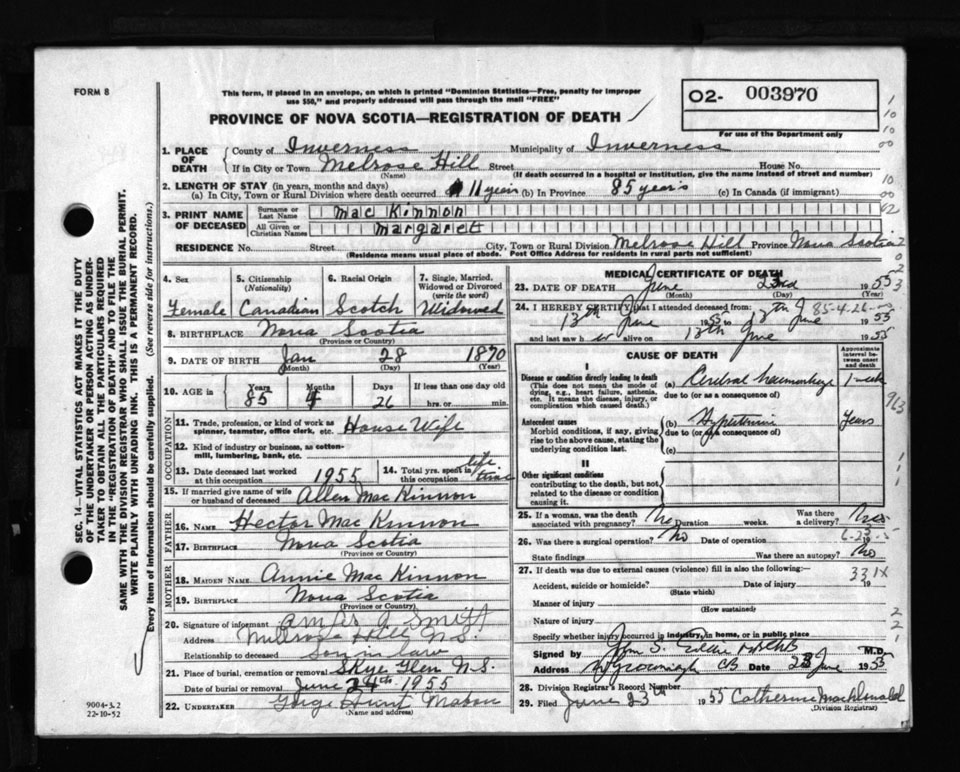 FORM 8
This form, if placed in an envelope, on which is printed "Dominion Statistics—Free, penalty for improper
use $50," and properly addressed will pass through the mail "FREE"
PROVINCE OF NOVA SCOTIA—REGISTRATION OF DEATH
O2- 003970
For use of the Department only
1. PLACE OF DEATH County of Inverness Municipality of Inverness
If in City or Town Melrose Hill Street House No.
(Name) (If death occurred in a hospital or institution, give the name instead of street and number)
2. LENGTH OF STAY (in years, months and days)
(a) In City, Town or Rural Division where death occurred 11 years (b) In Province 85 years (c) In Canada (if immigrant)
3. PRINT NAME OF DECEASED
Surname or Last Name Mac Kinnon
All Given or Christian Names Margaret
RESIDENCE No. Street City, Town or Rural Division Melrose Hill Province Nova Scotia
(Residence means usual place of abode. Post Office Address for residents in rural parts not sufficient)
4. Sex Female
5. Citizenship (Nationality) Canadian
6. Racial Origin Scotch
7. Single, Married, Widowed or Divorced (write the word) Widowed
8. BIRTHPLACE Nova Scotia
(Province or Country)
9. DATE OF BIRTH Jan 28 1870
(Month) (Day) (Year)
10. AGE in Years 85 Months 4 Days 26 If less than one day old
hrs. or min.
OCCUPATION
11. Trade, profession, or kind of work as spinner, teamster, office clerk, etc. House Wife
12. Kind of industry or business, as cotton-mill, lumbering, bank, etc.
13. Date deceased last worked at this occupation 1955
14. Total yrs. spent in this occupation life time
15. If married give name of wife or husband of deceased Allen Mac Kinnon
FATHER
16. NAME Hector Mac Kinnon
17. BIRTHPLACE Nova Scotia
(Province or Country)
MOTHER
18. MAIDEN NAME Annie Mac Kinnon
19. BIRTHPLACE Nova Scotia
(Province or Country)
20. Signature of informant
Address Melrose Hill N.S.
Relationship to deceased Son in law
21. Place of burial, cremation or removal Skye Glen N.S.
Date of burial or removal June 24th 1955
22. UNDERTAKER George Hunt Mabou
(Name and address)
MEDICAL CERTIFICATE OF DEATH
23. DATE OF DEATH June 23rd 1955
(Month) (Day) (Year)
24. I HEREBY CERTIFY that I attended deceased from:
13th June 1955 to 17th June 1955
85-4-26
and last saw her alive on 17th June 1955
CAUSE OF DEATH
Approximate interval between onset and death
I
Disease or condition directly leading to death
(This does not mean the mode of dying, e.g., heart failure, asthenia, etc. It means the disease, injury, or complication which caused death.)
(a) Cerebral haemorrhage 1 week
due to (or as a consequence of)
Antecedent causes
Morbid conditions, if any, giving rise to the above cause, stating the underlying condition last.
(b) Years
due to (or as a consequence of)
(c)
II
Other significant conditions
contributing to the death, but not related to the disease or condition causing it.
25. If a woman, was the death associated with pregnancy? No Duration weeks. Was there a delivery? No
26. Was there surgical operation? No Date of operation 19
State findings Was there an autopsy? No
27. If death was due to external causes (violence) fill in also the following:—
Accident, suicide or homicide? Date of injury 19
(State which)
331X
Manner of injury
(How sustained)
Nature of injury
Specify whether injury occurred in industry, in home, or in public place
Signed by M.D.
Address CB Date 23 June 1955
28. Division Registrar's Record Number
29. Filed June 23rd 1955 Catherine MacDonald
(Division Registrar)
SEC. 14—VITAL STATISTICS ACT MAKES IT THE DUTY
OF THE UNDERTAKER OR PERSON ACTING AS UNDER-
TAKER TO OBTAIN ALL THE PARTICULARS REQUIRED
IN THE "REGISTRATION OF DEATH" AND TO FILE THE
SAME WITH THE DIVISION REGISTRAR WHO SHALL ISSUE THE BURIAL PERMIT.
WRITE PLAINLY WITH UNFADING INK. THIS IS A PERMANENT RECORD.
Every item of information should be carefully supplied. (See reverse side for instructions.)
9004-3.2
22-10-52